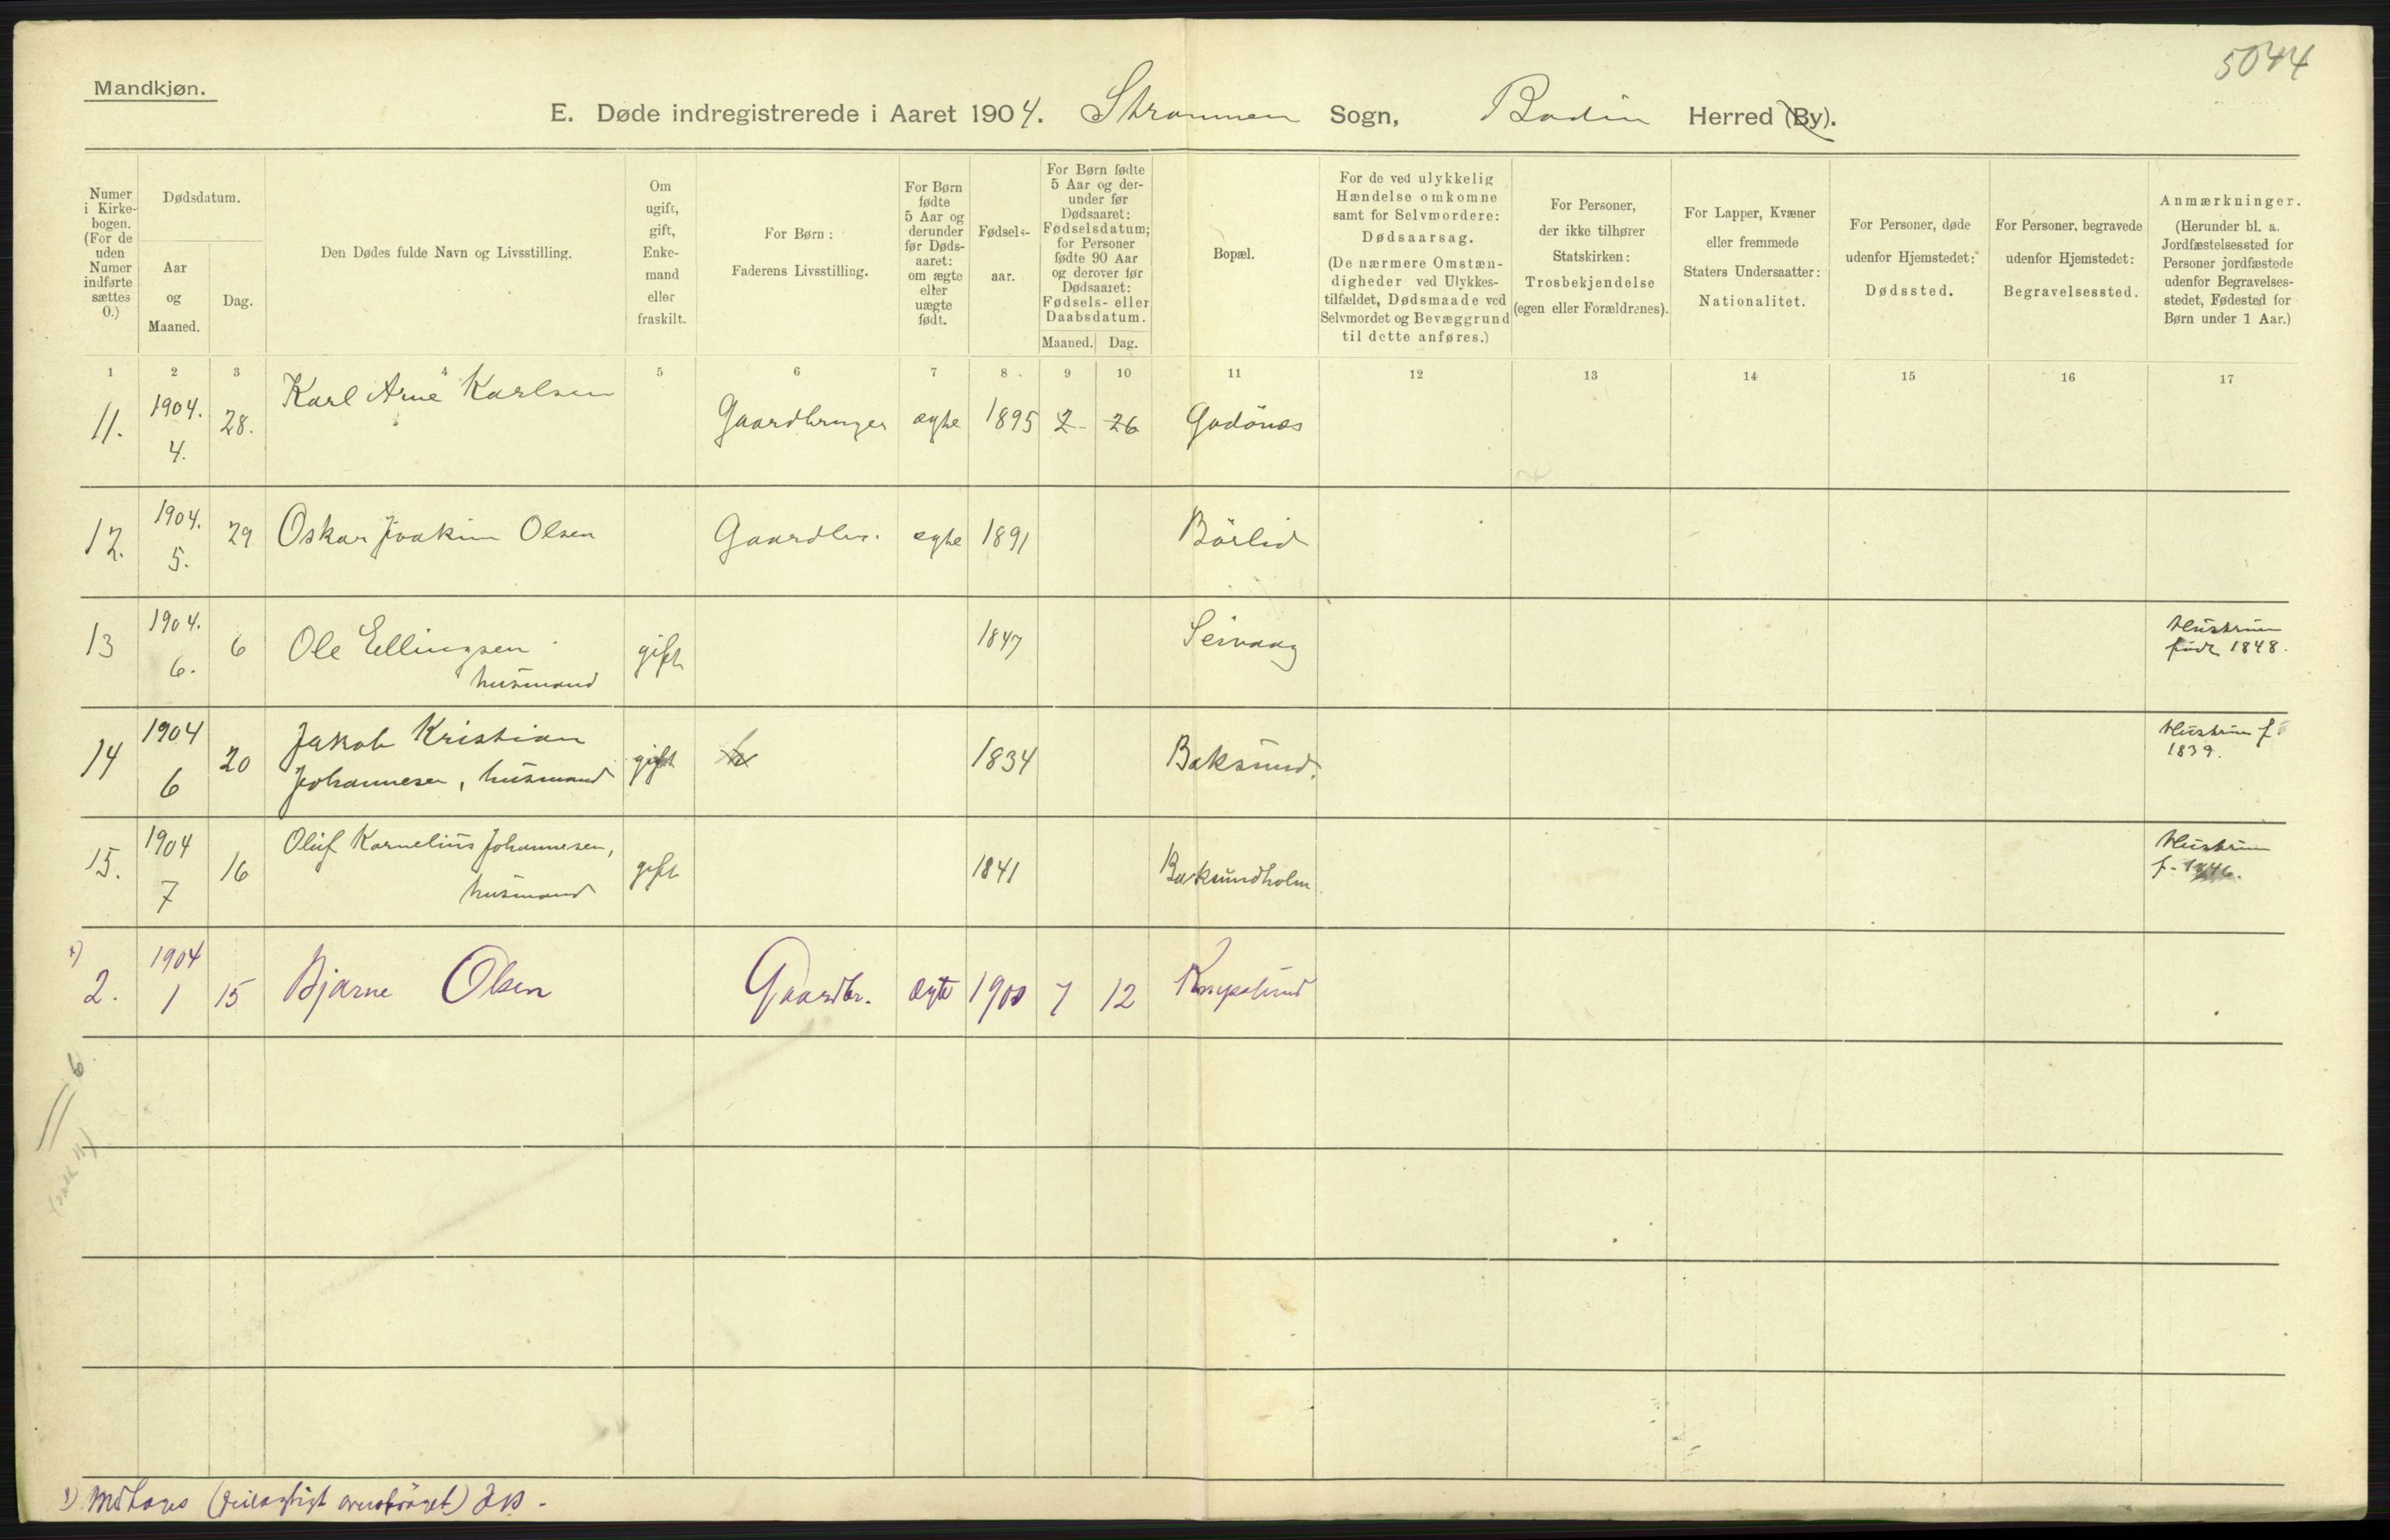 5044
Mandkjøn.
E. Døde indregistrerede i Aaret 1904. Strømmen Sogn, Bodin Herred (By).
Numer i Kirke-bogen. (For de uden Numer indførte sættes 0.)
Dødsdatum.
Aar og Maaned.
Dag.
Den Dødes fulde Navn og Livsstilling.
Om ugift, gift, Enke-mand eller fraskilt.
For Børn: Faderens Livsstilling.
For Børn fødte 5 Aar og derunder før Døds-aaret: om ægte eller uægte født.
Fødsels-aar.
For Børn fødte 5 Aar og der-under før Dødsaaret: Fødselsdatum; for Personer fødte 90 Aar og derover før Dødsaaret: Fødsels- eller Daabsdatum.
Maaned. Dag.
Bopæl.
For de ved ulykkelig Hændelse omkomne samt for Selvmordere: Dødsaarsag. (De nærmere Omstæn-digheder ved Ulykkes-tilfældet, Dødsmaade ved Selvmordet og Bevæggrund til dette anføres.)
For Personer, der ikke tilhører Statskirken: Trosbekjendelse (egen eller Forældrenes).
For Lapper, Kvæner eller fremmede Staters Undersaatter: Nationalitet.
For Personer, døde udenfor Hjemstedet: Dødssted.
For Personer, begravede udenfor Hjemstedet: Begravelsessted.
Anmærkninger. (Herunder bl. a. Jordfæstelsessted for Personer jordfæstede udenfor Begravelses-stedet, Fødested for Børn under 1 Aar.)
1 2 3 4 5 6 7 8 9 10 11 12 13 14 15 16 17
11. 1904. 4. 28. Karl Arne Karlsen Gaardbruger ægte 1895 2 26 Godönes
12. 1904. 5. 29 Oskar Joakim Olsen Gaardbr. ægte 1891 Börlid
13 1904. 6. 6 Ole Ellingsen husmand gift 1847 Seivaag Hustrun född 1848.
14 1904 6 20 Jakob Kristian Johannesen, husmand gift 1834 Baksund. Hustrun f 1839.
15. 1904 7 16 Oluf Kornelius Johannesen, husmand gift 1841 Baksundholm Hustrun f. 1846.
1) 2. 1904 1 15 Bjarne Olsen Gaardbr. ægte 1900 7 12
6
1) Mdtages (feilagtigt